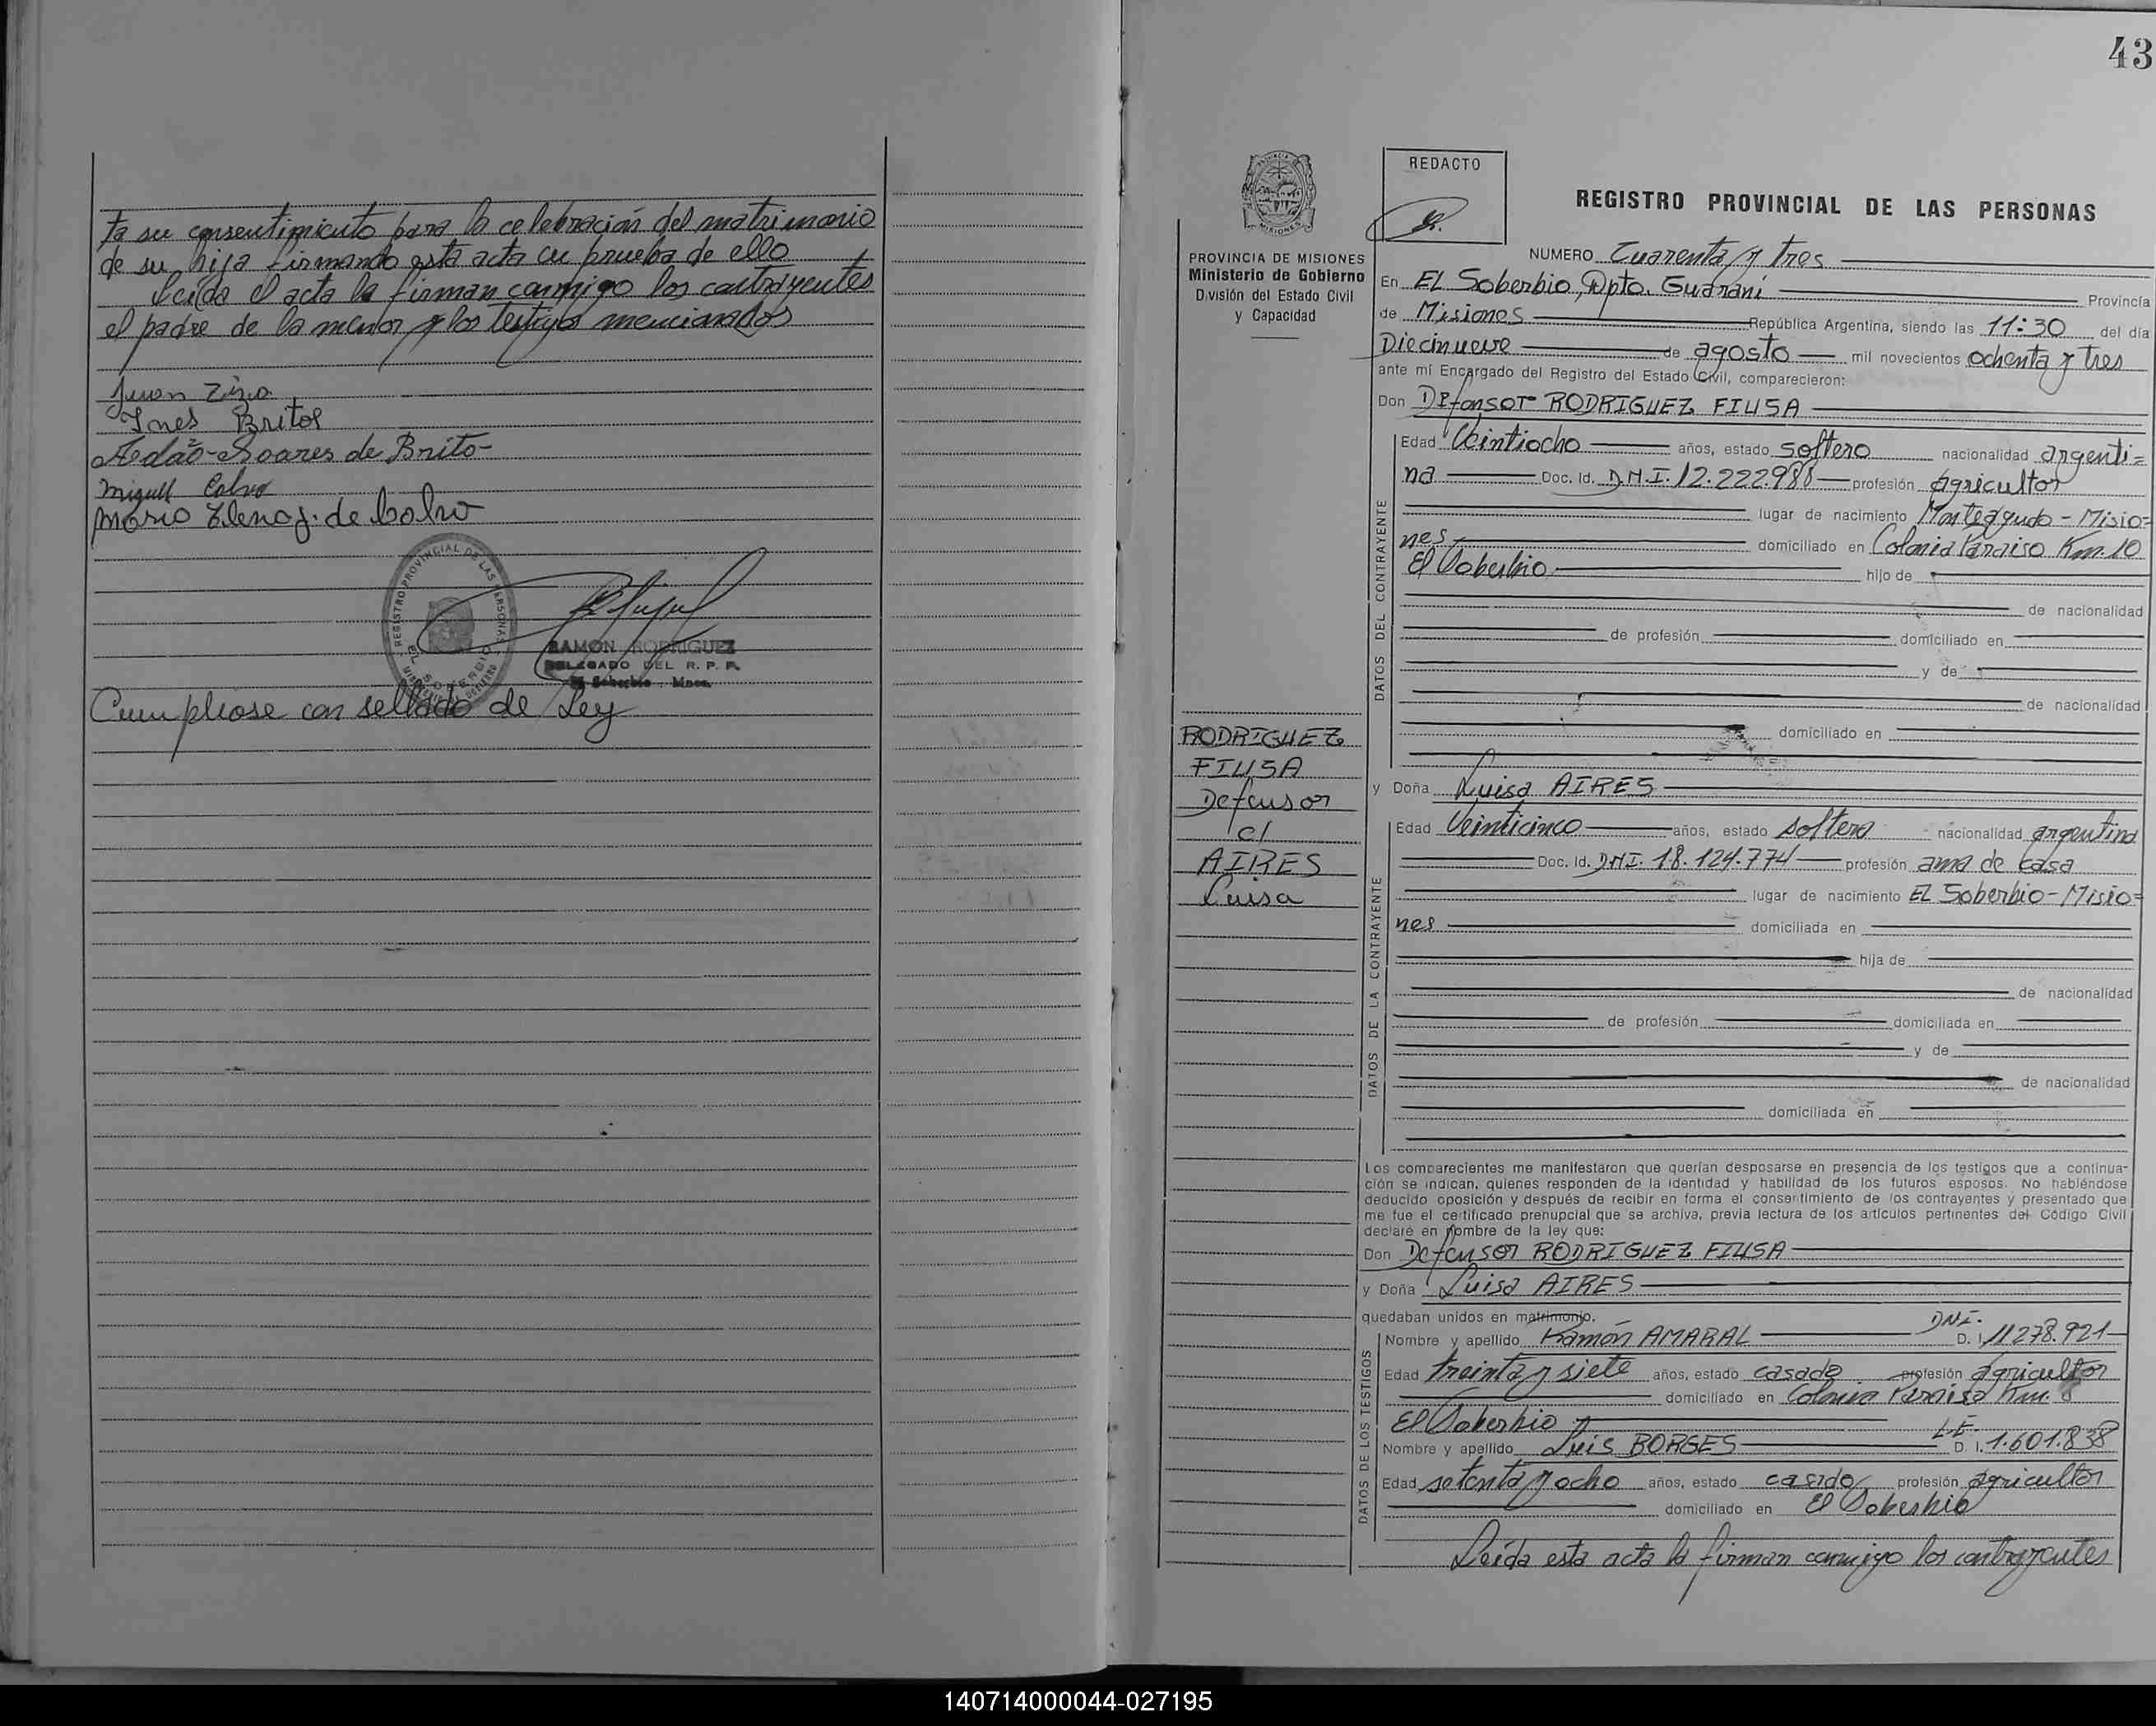 ta su consentimiento para la celebración del matrimonio
de su hija firmando esta acta en prueba de ello
Leída el acta la firman conmigo los contrayentes
el padre de la menor y los testigos mencionados
Juan
Ines Britos
Adão Soares de Brito
Miguel Calvo
Mario Elena J. de Calvo
REGISTRO PROVINCIAL DE LAS PERSONAS
EL SOBERBIO
RAMON RODRIGUEZ
DELEGADO DEL R. P. P.
El Soberbio - Mnes.
Cumpliose con sellado de Ley
43
REDACTO
REGISTRO PROVINCIAL DE LAS PERSONAS
MISIONES
PROVINCIA DE MISIONES
Ministerio de Gobierno
División del Estado Civil
y Capacidad
RODRIGUEZ
FIUSA
Defensor
c/
AIRES
Luisa
NUMERO Cuarenta y tres
En EL Soberbio, Dpto. Guaraní Provincia
de Misiones República Argentina, siendo las 11:30 del día
Diecinueve de agosto mil novecientos ochenta y tres
ante mí Encargado del Registro del Estado Civil, comparecieron:
Don Defensor RODRIGUEZ FIUSA
DATOS DEL CONTRAYENTE
Edad Veintiocho años, estado soltero nacionalidad argenti=
na Doc. Id. D.N.I. 12.222.988 profesión agricultor
lugar de nacimiento Monteagudo - Misio=
nes domiciliado en Colonia Paraiso Km. 10
El Soberbio hijo de
de nacionalidad
de profesión domiciliado en
y de
de nacionalidad
domiciliado en
y Doña Luisa AIRES
DATOS DE LA CONTRAYENTE
Edad Veinticinco años, estado soltera nacionalidad argentina
Doc. Id. DNI. 18.124.774 profesión ama de casa
lugar de nacimiento EL Soberbio - Misio=
nes domiciliada en
hija de
de nacionalidad
de profesión domiciliada en
y de
de nacionalidad
domiciliada en
Los comparecientes me manifestaron que querían desposarse en presencia de los testigos que a continua-
ción se indican, quienes responden de la identidad y habilidad de los futuros esposos. No habiéndose
deducido oposición y después de recibir en forma el consentimiento de los contrayentes y presentado que
me fue el certificado prenupcial que se archiva, previa lectura de los artículos pertinentes del Código Civil
declaré en nombre de la ley que:
Don Defensor RODRIGUEZ FIUSA
y Doña Luisa AIRES
quedaban unidos en matrimonio.
DATOS DE LOS TESTIGOS
Nombre y apellido Ramón AMARAL DNI. D. I. 11278.921
Edad treinta y siete años, estado casado profesión agricultor
domiciliado en Colonia Paraiso Km. 8
El Soberbio
Nombre y apellido Luis BORGES L.E. D. I. 1.601.838
Edad setenta y ocho años, estado casado profesión agricultor
domiciliado en El Soberbio
Leída esta acta la firman conmigo los contrayentes
140714000044-027195